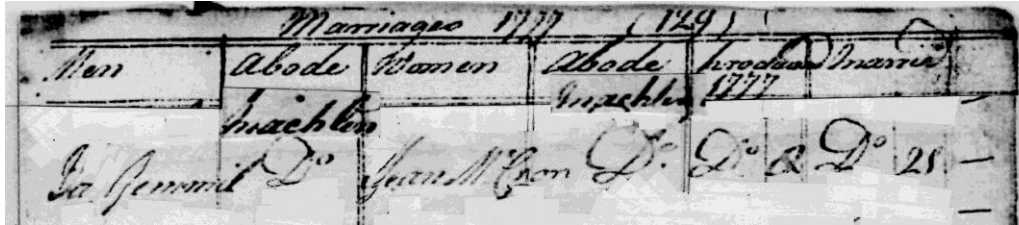 Marriages 1777 (129)
Men Abode Women Abode Proclaimed Married
Machlin 1777
Machlin
Ja. Gemmil Do Jean McCron Do. Do 8 Do 25 —